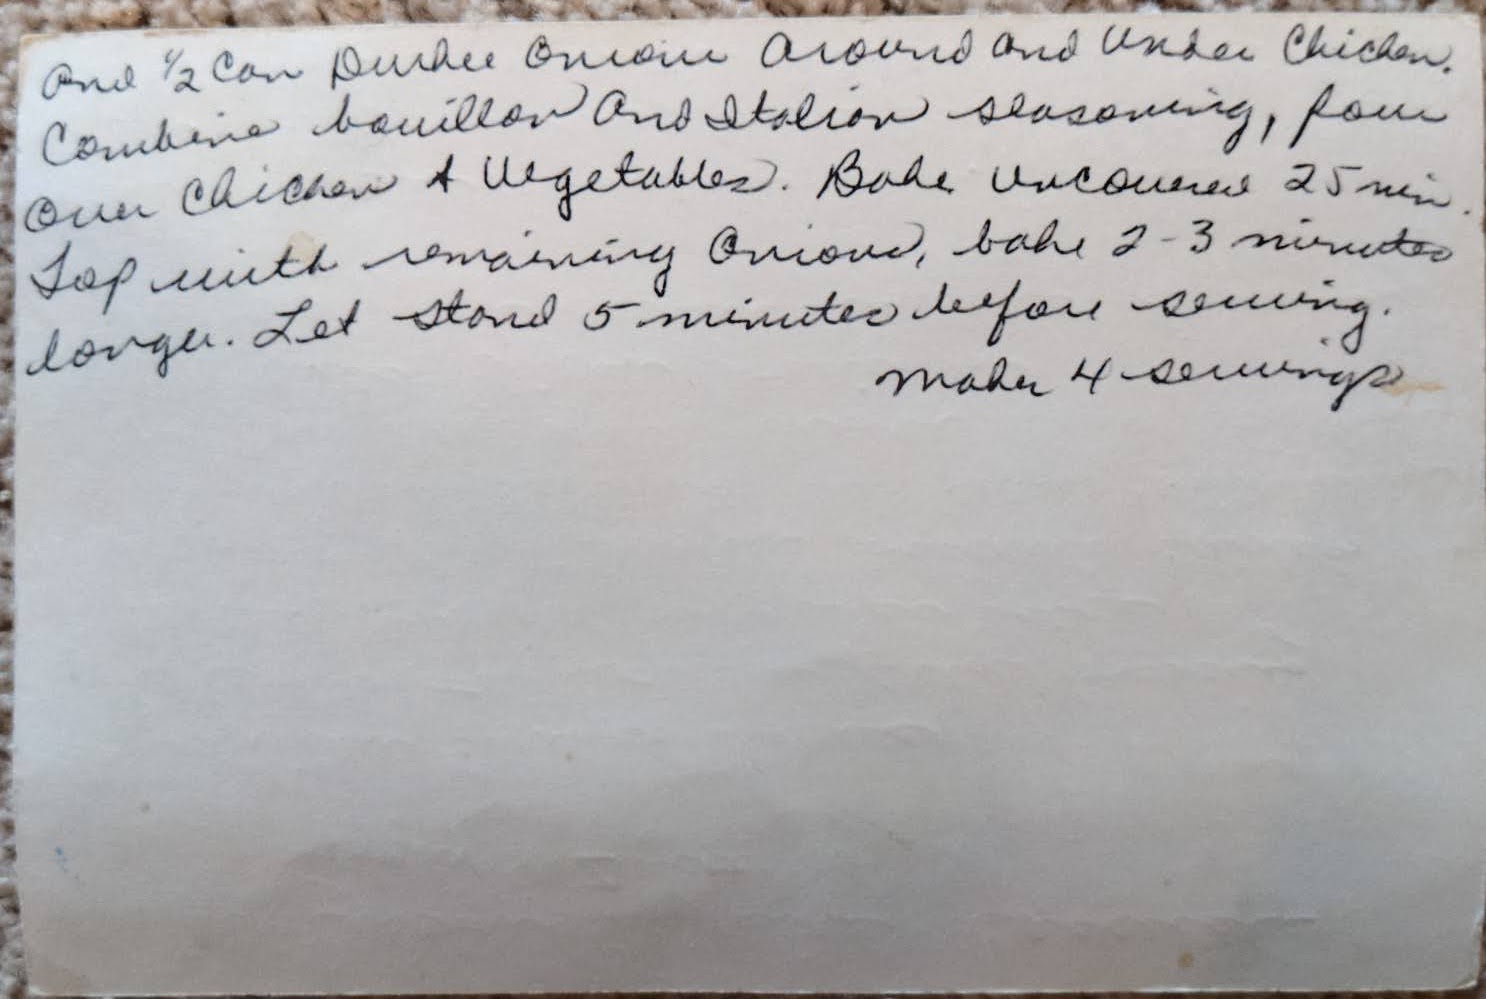 and 1/2 can Durkee Onions around and under Chicken.
Combine bouillon and Italian seasoning, pour
over Chicken & Vegetables. Bake uncovered 25 min.
Top with remaining Onions, bake 2-3 minutes
longer. Let stand 5 minutes before serving.
Makes 4 servings